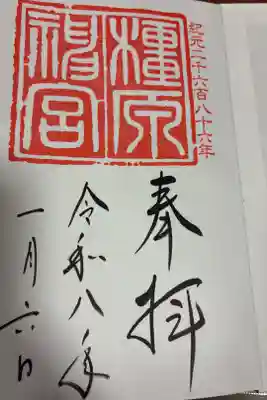 紀元二千六百八十六年
橿原
神宮
奉拝
令和八年
一月六日